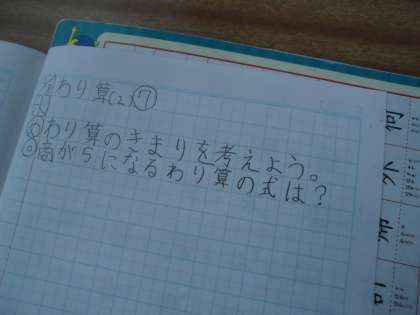 わり算(2)⑦
わり算のきまりを考えよう。
◎商が5になるわり算の式は?